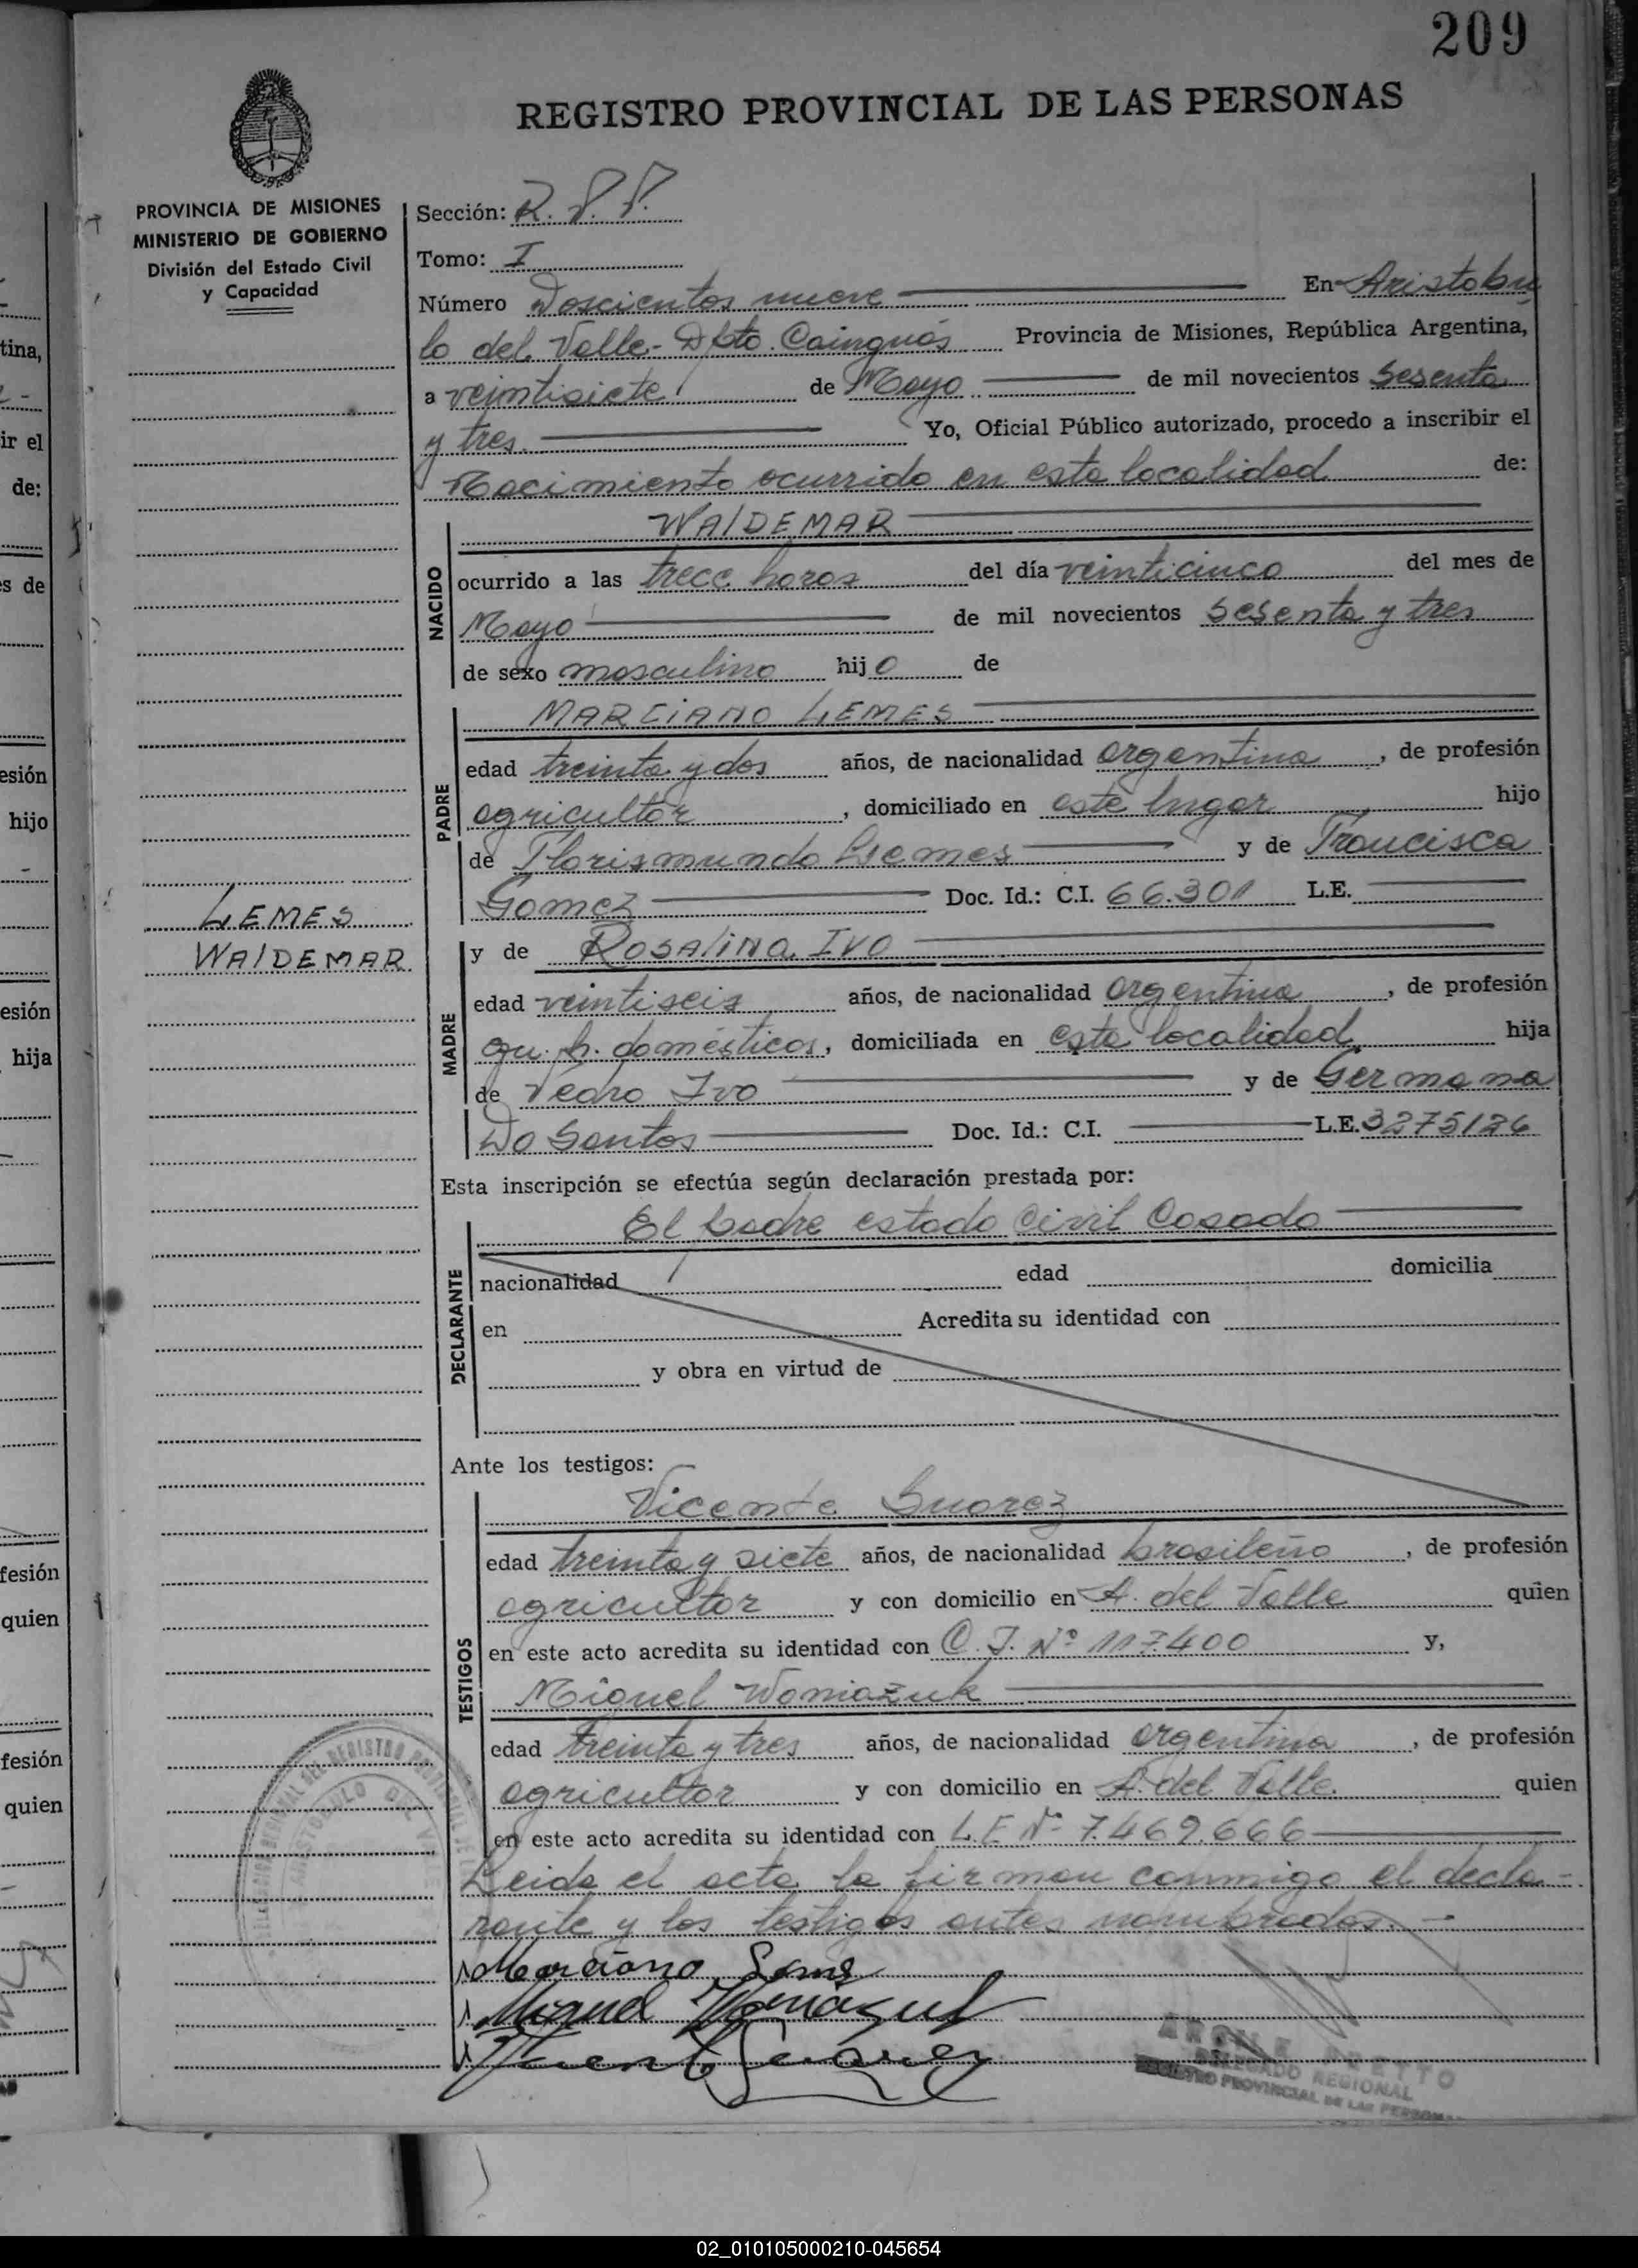 209
REGISTRO PROVINCIAL DE LAS PERSONAS
PROVINCIA DE MISIONES
MINISTERIO DE GOBIERNO
División del Estado Civil
y Capacidad
Sección: R.P.P.
Tomo: I
Número Doscientos nueve En Aristobu
lo del Valle - Dpto. Cainguás Provincia de Misiones, República Argentina,
a veintisiete de Mayo de mil novecientos Sesenta
y tres. Yo, Oficial Público autorizado, procedo a inscribir el
Nacimiento ocurrido en esta localidad de:
NACIDO
WAlDEMAR
ocurrido a las trece horas del día veinticinco del mes de
Mayo de mil novecientos Sesenta y tres
de sexo masculino hijo de
PADRE
MARCIANO LEMES
edad treinta y dos años, de nacionalidad argentina, de profesión
agricultor, domiciliado en este lugar hijo
de Florismundo Lemes y de Francisca
Gomez Doc. Id.: C.I. 66.301 L.E.
LEMES
WAlDEMAR
MADRE
y de ROSAlINA IVO
edad veintiseis años, de nacionalidad argentina, de profesión
qu. h. domésticos, domiciliada en esta localidad hija
de Pedro Ivo y de Germana
Do Santos Doc. Id.: C.I. L.E. 3275126
Esta inscripción se efectúa según declaración prestada por:
DECLARANTE
El padre estado Civil Casado
nacionalidad edad domicilia
en Acredita su identidad con
y obra en virtud de
Ante los testigos:
TESTIGOS
Vicente Suarez
edad treinta y siete años, de nacionalidad brasileño, de profesión
agricultor y con domicilio en A. del Valle quien
en este acto acredita su identidad con C.I. Nº 117.400 y,
Miguel Woniazuk
edad treinta y tres años, de nacionalidad argentina, de profesión
agricultor y con domicilio en A. del Valle. quien
en este acto acredita su identidad con L.E Nº 7.469.666
Leida el acta la firman conmigo el decla-
rante y los testigos antes nombrados. -
Marciano Lems
Miguel Woniazuk
Vicente Suarez
DELEGADO REGIONAL
REGISTRO PROVINCIAL DE LAS PERSONAS
tina,
ir el
de:
s de
esión
hijo
esión
hija
fesión
quien
fesión
quien
02_010105000210-045654